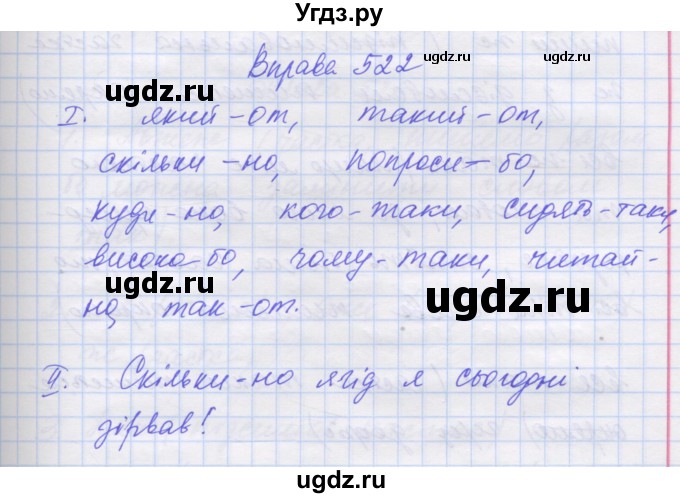 Угдз.ру
Вправа 522
ugdz.ru
ugdz.ru
I. який-от, такий-от,
скільки-но, попроси-бо,
ugdz.ru
куди-но, кого-таки, сидять-таки,
високо-бо, чому-таки, читай-
ugdz.ru
ugdz.ru
но, так-от.
II. Скільки-но ягід я сьогодні
ugdz.ru
зірвав!
ugdz.ru
ugdz.ru